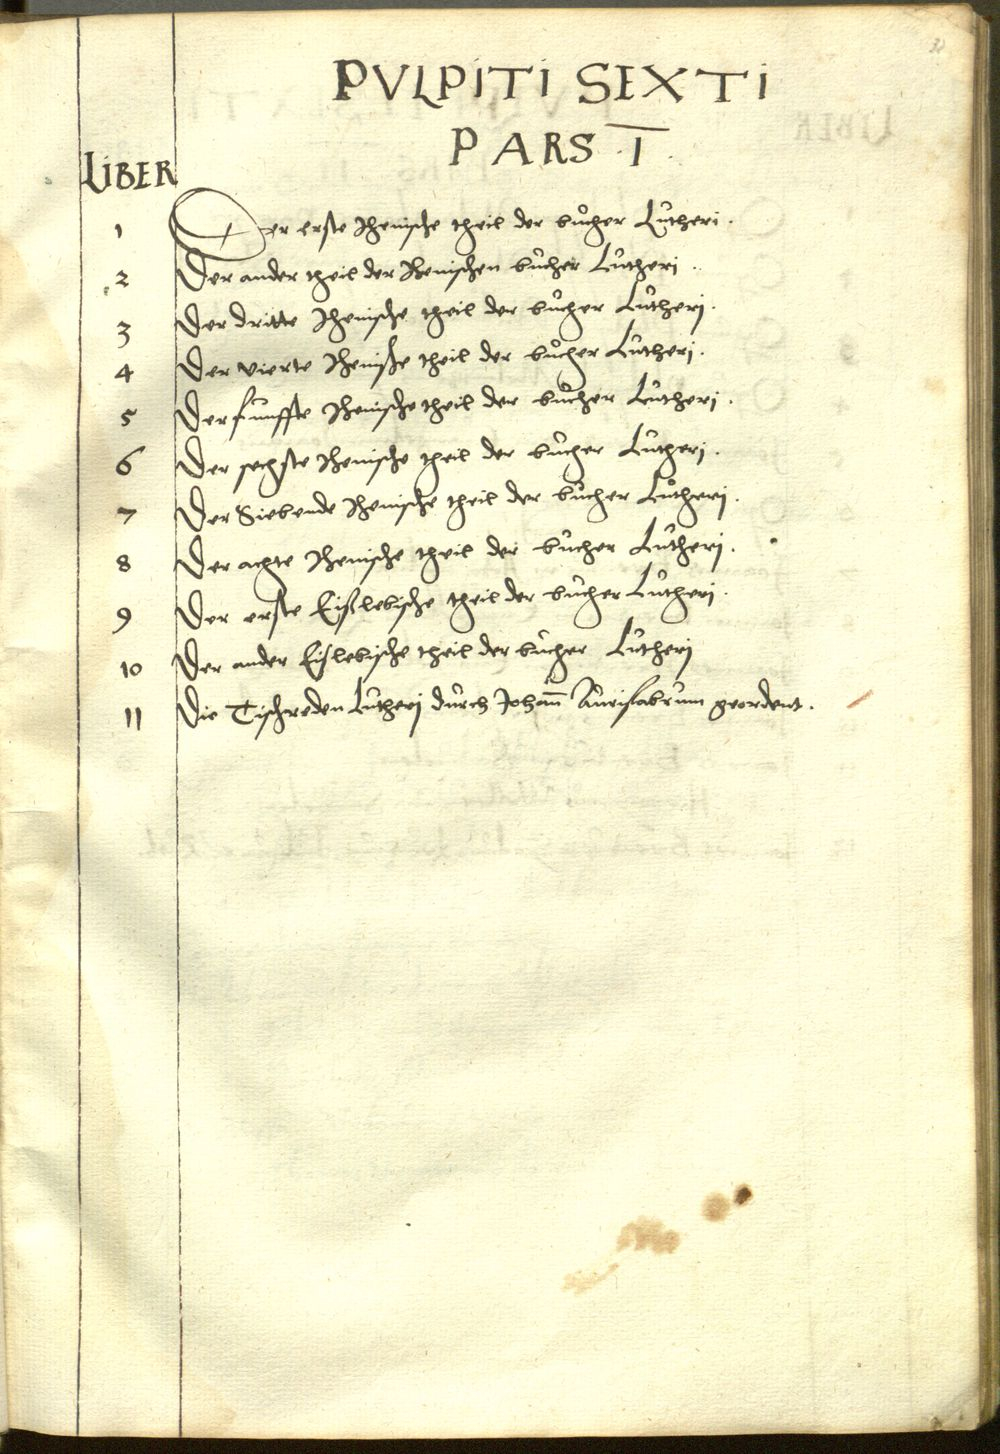 PVLPITI SEXTI
PARS I
LIBER
1 Der erste Jhenische theil der bůcher Lutheri.
2 Der ander theil der Jhenischen bůcher Lutheri.
3 Der dritte Jhenische theil der bůcher Lutherj.
4 Der vierte Jhenische theil der bůcher Lutherj.
5 Der funffte Jhenische theil der bůcher Lutherj.
6 Der sechste Jhenische theil der bůcher Lutherj.
7 Der Siebende Jhenische theil der bůcher Lutherj.
8 Der achte Jhenische theil der bůcher Lutherj.
9 Der erste Eißlebische theil der bůcher Lutherj.
10 Der ander Eißlebische theil der bůcher Lutherj
11 Die Tischreden Lutherj durch Johann̄ Aurifabrum geordent.